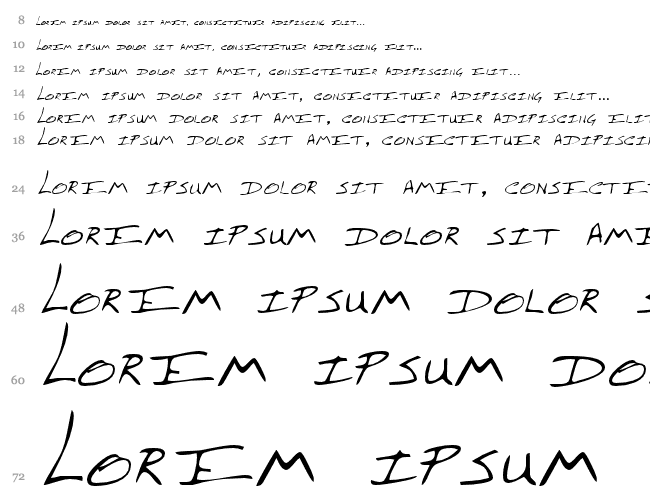 8 Lorem ipsum dolor sit amet, consectetuer adipiscing elit...
10 Lorem ipsum dolor sit amet, consectetuer adipiscing elit...
12 Lorem ipsum dolor sit amet, consectetuer adipiscing elit...
14 Lorem ipsum dolor sit amet, consectetuer adipiscing elit...
16 Lorem ipsum dolor sit amet, consectetuer adipiscing elit
18 Lorem ipsum dolor sit amet, consectetuer adipiscin
24 Lorem ipsum dolor sit amet, consectet
36 Lorem ipsum dolor sit ame
48 Lorem ipsum dolor s
60 Lorem ipsum do
72 Lorem ipsum